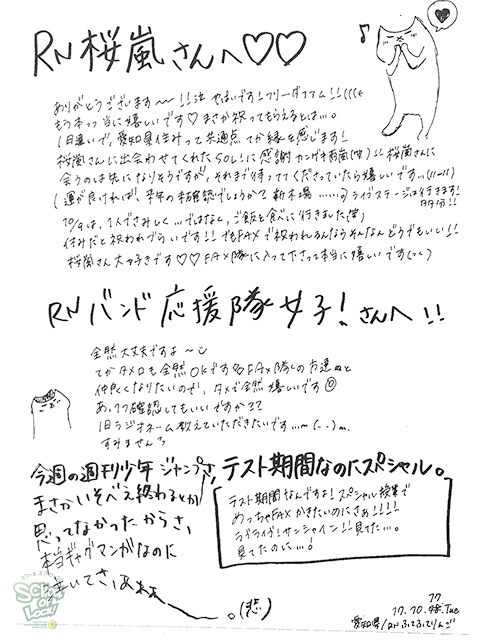 RN 桜嵐さんへ♡♡
♪
ありがとうございます〜!!泣 やばいです!フリーダァァム!!(((
もう本っっ当に嬉しいです♡まさか祝ってもらえるとは…。
1日違いで、愛知県住みって共通点 てか縁を感じます!
桜嵐さんに出会わせてくれたSOL!に感謝カンゲキ雨嵐(唄)!! 桜嵐さんに
会うのは先になりそうですが、それまで待ってってくださっていたら嬉しいです…
(運が良ければ、来年の 確認でしょうか? 新木場 ……) ライブステージは行きます!
多分!!
10/9は、1人でさみしく…ではなく、ご飯を食べに行きました(笑)
休みだと祝われづらいです!!でもFAXで祝われるんならそんなんどうでもいい!!
桜嵐さん大好きです♡♡FAX隊に入って下さって本当に嬉しいです
RN バンド応援隊女子!さんへ!!
全然大丈夫ですよ〜
てかタメ口も全然OKです FAX隊の方達と
仲良くなりたいので、タメで全然嬉しいです
あ、1つ確認してもいいですか??
旧ラジオネーム教えていただきたいです…m(-_-)m
すみません
今週の週刊少年ジャンプさ、
まさかいそべえ終わるとか
思ってなかったからさ、
本当ギャグマンガなのに
泣いてさ、あぁぁ
。(悲)
テスト期間なのにスペシャル。
テスト期間なんですよ!スペシャル授業で
めっちゃFAXかきたいのにさぁ!!!!
ラブライブ!サンシャイン!!見てた…。
見てたのに…!
SCHOOL OF LOCK!
17
17.10. Tue
愛知県/RN ふてふてりんご